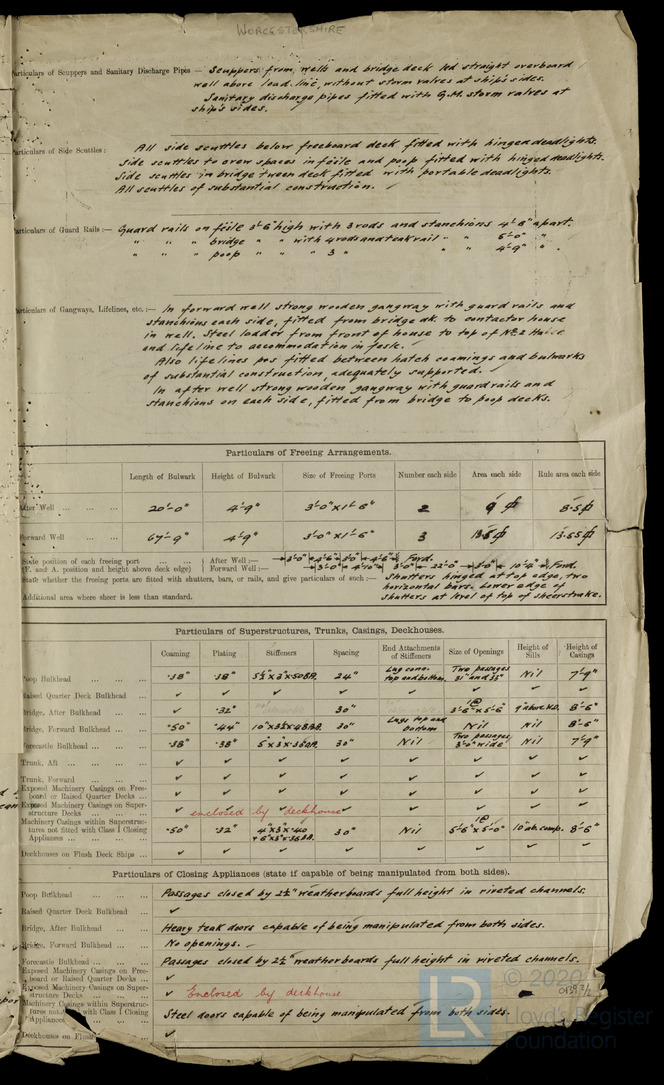 WORCESTERSHIRE
Particulars of Scuppers and Sanitary Discharge Pipes — Scuppers from wells and bridge deck led straight overboard
well above load line, without storm valves at ship's sides.
Sanitary discharge pipes fitted with G.M. storm valves at
ship's sides.
Particulars of Side Scuttles: All side scuttles below freeboard deck fitted with hinged deadlights.
Side scuttles to crew spaces in fo'sle and poop fitted with hinged deadlights.
Side scuttles in bridge tween deck fitted with portable deadlights.
All scuttles of substantial construction.
Particulars of Guard Rails:— Guard rails on fo'sle 3'-6" high with 3 rods and stanchions 4'-6" apart.
" " " bridge " " with 4 rods and teak rail " " 5'-0" "
" " " poop " " " 3 " " " 4'-9" " .
Particulars of Gangways, Lifelines, etc.:— In forward well strong wooden gangway with guard rails and
stanchions each side, fitted from bridge dk to contactor house
in well. Steel ladder from front of house to top of No 2 Hatch
and lifeline to accommodation in fo'sle.
Also lifelines p&s fitted between hatch coamings and bulwarks
of substantial construction, adequately supported.
In after well strong wooden gangway with guard rails and
stanchions on each side, fitted from bridge to poop decks.
Particulars of Freeing Arrangements.
Length of Bulwark Height of Bulwark Size of Freeing Ports Number each side Area each side Rule area each side
After Well 20'-0" 4'-9" 3'-0" x 1'-6" 2 9 8.5
Forward Well 67'-9" 4'-9" 3'-0" x 1'-6" 3 13.5 13.55
State position of each freeing port After Well:— 3'-0" 4'-6" 3'-0" 4'-6" Ford.
(F. and A. position and height above deck edge) Forward Well:— 3'-0" 4'-10" 3'-0" 22'-0" 3'-0" 10'-4" Ford.
State whether the freeing ports are fitted with shutters, bars, or rails, and give particulars of such:— Shutters hinged at top edge, two
horizontal bars. Lower edge of
Additional area where sheer is less than standard. shutters at level of top of sheerstrake.
Particulars of Superstructures, Trunks, Casings, Deckhouses.
Coaming Plating Stiffeners Spacing End Attachments of Stiffeners Size of Openings Height of Sills Height of Casings
Poop Bulkhead .38" .38" 5½" x 3" x .50 B.A. 24" Lug conn. top and bottom. Two passages 31" and 35" Nil 7'-9"
Raised Quarter Deck Bulkhead ✓ ✓ ✓ ✓ ✓ ✓ ✓ ✓
Bridge, After Bulkhead .32" 30" 1@ 3'-6" x 5'-6" 9" above W.D. 8'-6"
Bridge, Forward Bulkhead .50" .44" 10" x 3½" x .48 B.A. 30" Lugs top and bottom Nil Nil 8'-6"
Forecastle Bulkhead .38" .38" 5" x 3" x .38 O.A. 30" Nil Two passages 3'-0" wide Nil 7'-9"
Trunk, Aft ✓ ✓ ✓ ✓ ✓ ✓ ✓ ✓
Trunk, Forward ✓ ✓ ✓ ✓ ✓ ✓ ✓ ✓
Exposed Machinery Casings on Free-
board or Raised Quarter Decks ✓ ✓ ✓ ✓ ✓ ✓ ✓ ✓
Exposed Machinery Casings on Super-
structure Decks ✓ enclosed by deckhouse ✓ ✓ ✓ ✓
Machinery Casings within Superstruc-
tures not fitted with Class I Closing
Appliances .50" .32" 4" x 3" x .40 & 6" x 3" x .36 B.A. 30" Nil 1@ 5'-6" x 5'-0" 10" ab. comp. 8'-6"
Deckhouses on Flush Deck Ships ✓ ✓ ✓ ✓ ✓ ✓ ✓ ✓
Particulars of Closing Appliances (state if capable of being manipulated from both sides).
Poop Bulkhead Passages closed by 2½" weatherboards full height in riveted channels.
Raised Quarter Deck Bulkhead ✓
Bridge, After Bulkhead Heavy teak doors capable of being manipulated from both sides.
Bridge, Forward Bulkhead No openings.
Forecastle Bulkhead Passages closed by 2½" weatherboards full height in riveted channels.
Exposed Machinery Casings on Free-
board or Raised Quarter Decks ✓
Exposed Machinery Casings on Super-
structure Decks ✓ Enclosed by deckhouse
Machinery Casings within Superstruc-
tures not fitted with Class I Closing
Appliances Steel doors capable of being manipulated from both sides.
Deckhouses on Flush ✓
© 2020
LR
Lloyd's Register
Foundation